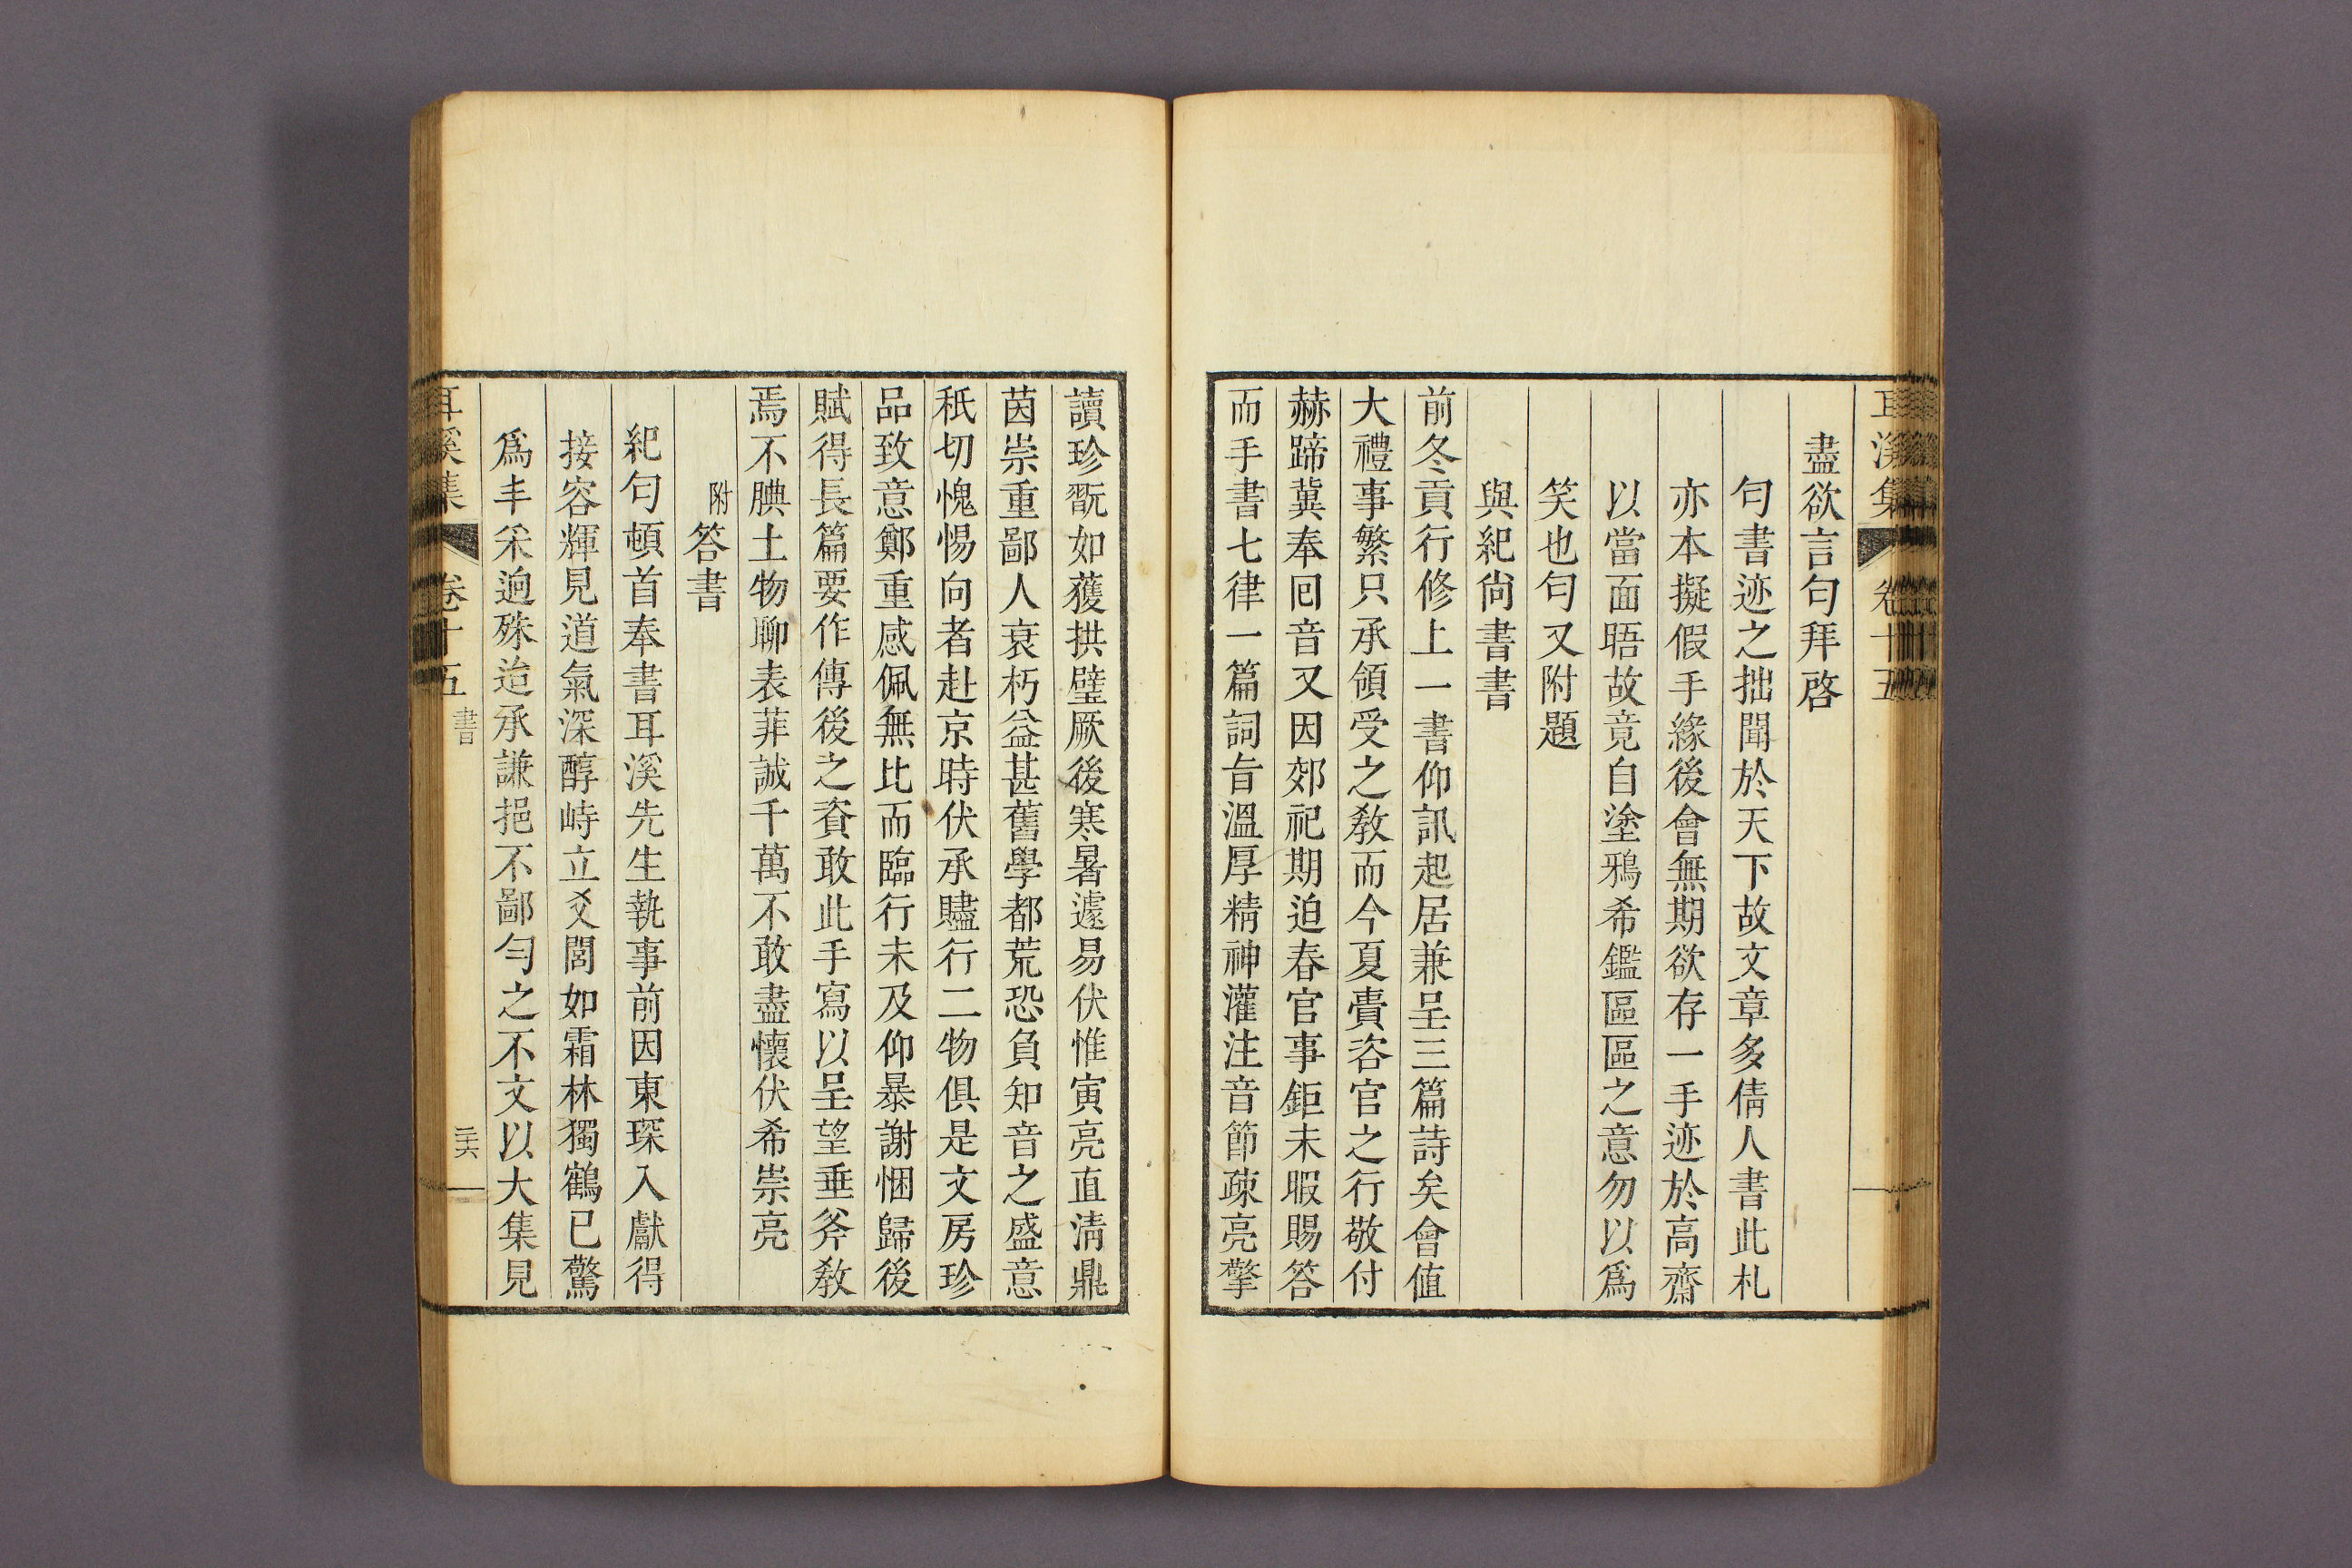 耳溪集 卷十五
盡欲言匀拜啓
匀書迹之拙聞於天下故文章多倩人書此札
亦本擬假手緣後會無期欲存一手迹於高齋
以當面晤故竟自塗鴉希鑑區區之意勿以爲
笑也匀又附題
與紀尙書書
前冬貢行修上一書仰訊起居兼呈三篇詩矣會值
大禮事繁只承領受之敎而今夏賷咨官之行敬付
赫蹄冀奉回音又因郊祀期迫春官事鉅未暇賜答
而手書七律一篇詞旨溫厚精神灌注音節疎亮擎
讀珍翫如獲拱璧厥後寒暑遽易伏惟寅亮直淸鼎
茵崇重鄙人衰朽益甚舊學都荒恐負知音之盛意
秖切愧惕向者赴京時伏承贐行二物俱是文房珍
品致意鄭重感佩無比而臨行未及仰暴謝悃歸後
賦得長篇要作傳後之資敢此手寫以呈望垂斧敎
焉不腆土物聊表菲誠千萬不敢盡懷伏希崇亮
附答書
紀匀頓首奉書耳溪先生執事前因東琛入獻得
接容輝見道氣深醇峙立爻閭如霜林獨鶴已驚
爲丰采逈殊迨承謙挹不鄙匀之不文以大集見
耳溪集 卷十五 書 二十六